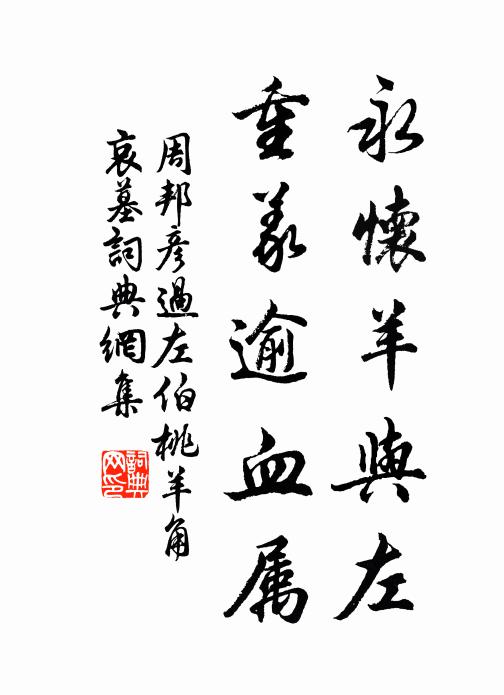 永懷羊與左
重義逾血属
周邦彦過左伯桃羊角
哀墓詞典網集
詞典网印